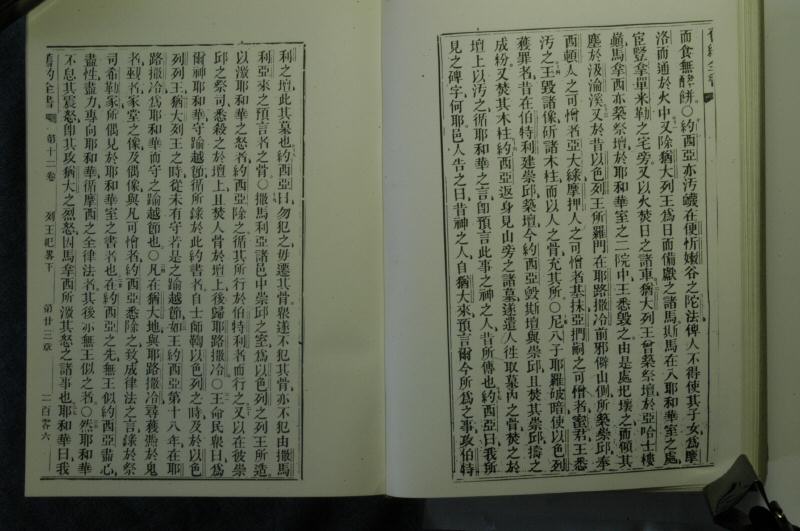 舊約全書
而食無酵餅○約西亞亦汚衊在便忻嫩谷之陀法俾人不得使其子女爲摩
洛而通於火中又除猶大列王爲日而備獻之諸馬斯馬在入耶和華室之處
宦豎拿單米勒之宅旁又以火焚日之諸車猶大列王曾築祭壇於亞哈士樓
巔馬拿西亦築祭壇於耶和華室之二院中王悉毀之由是處圯壞之而傾其
塵於汲淪溪又於昔以色列王所羅門在耶路撒冷前邪僻山側所築崇邱奉
西頓人之可憎者亞大綠摩押人之可憎者基抹亞捫嗣之可憎者蜜君王悉
汚之王毀諸像斫諸木柱而以人之骨充其所○尼八子耶羅破暗使以色列
獲罪者昔在伯特利建崇邱築壇今約西亞毀斯壇與崇邱且焚其崇邱擣之
成紛又焚其木柱約西亞返身見山旁之諸墓遂遣人往取墓內之骨焚之於
壇上以汚之循耶和華之言卽預言此事之神之人昔所傳也約西亞曰我所
見之碑字何耶邑人告之曰昔神之人自猶大來預言爾今所爲之事攻伯特
利之壇此其墓也約西亞曰勿犯之毋遷其骨衆遂不犯其骨亦不犯由撒馬
利亞來之預言者之骨○撒馬利亞諸邑中崇邱之室爲以色列之列王所造
以激耶和華之怒者約西亞除之循其所行於伯特利者而行之又以在彼崇
邱之祭司悉殺之於壇上且焚人骨於壇上後歸耶路撒冷○王命民衆曰爲
爾神耶和華守踰越節循所錄於此約書者自士師鞫以色列之時及於以色
列列王猶大列王之時從未有守若是之踰越節如王約西亞第十八年在耶
路撒冷爲耶和華而守之踰越節也○凡在猶大地與耶路撒冷尋獲憑於鬼
者覡者家堂之像及偶像與凡可憎者約西亞悉除之致成律法之言錄於祭
司希勒家所偶見於耶和華室之書者也在約西亞之先無王似約西亞盡心
盡性盡力專向耶和華循摩西之全律法者其後亦無王似之者○然耶和華
不息其震怒卽其攻猶大之烈怒因馬拿西所激其怒之諸事也耶和華曰我
舊約全書 第十二卷 列王紀畧下 第廿三章 二百零六